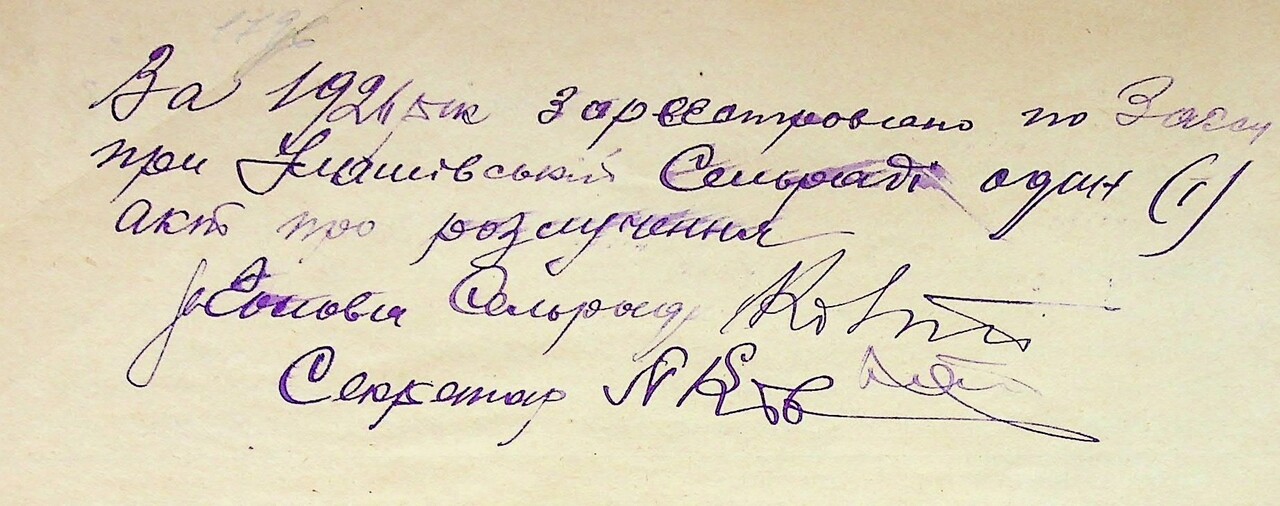 За 1926 рік зареєстровано по Загсу
при Ульашівській Сельраді один (1)
акт про розлучення
Голова Сельради
Секретар